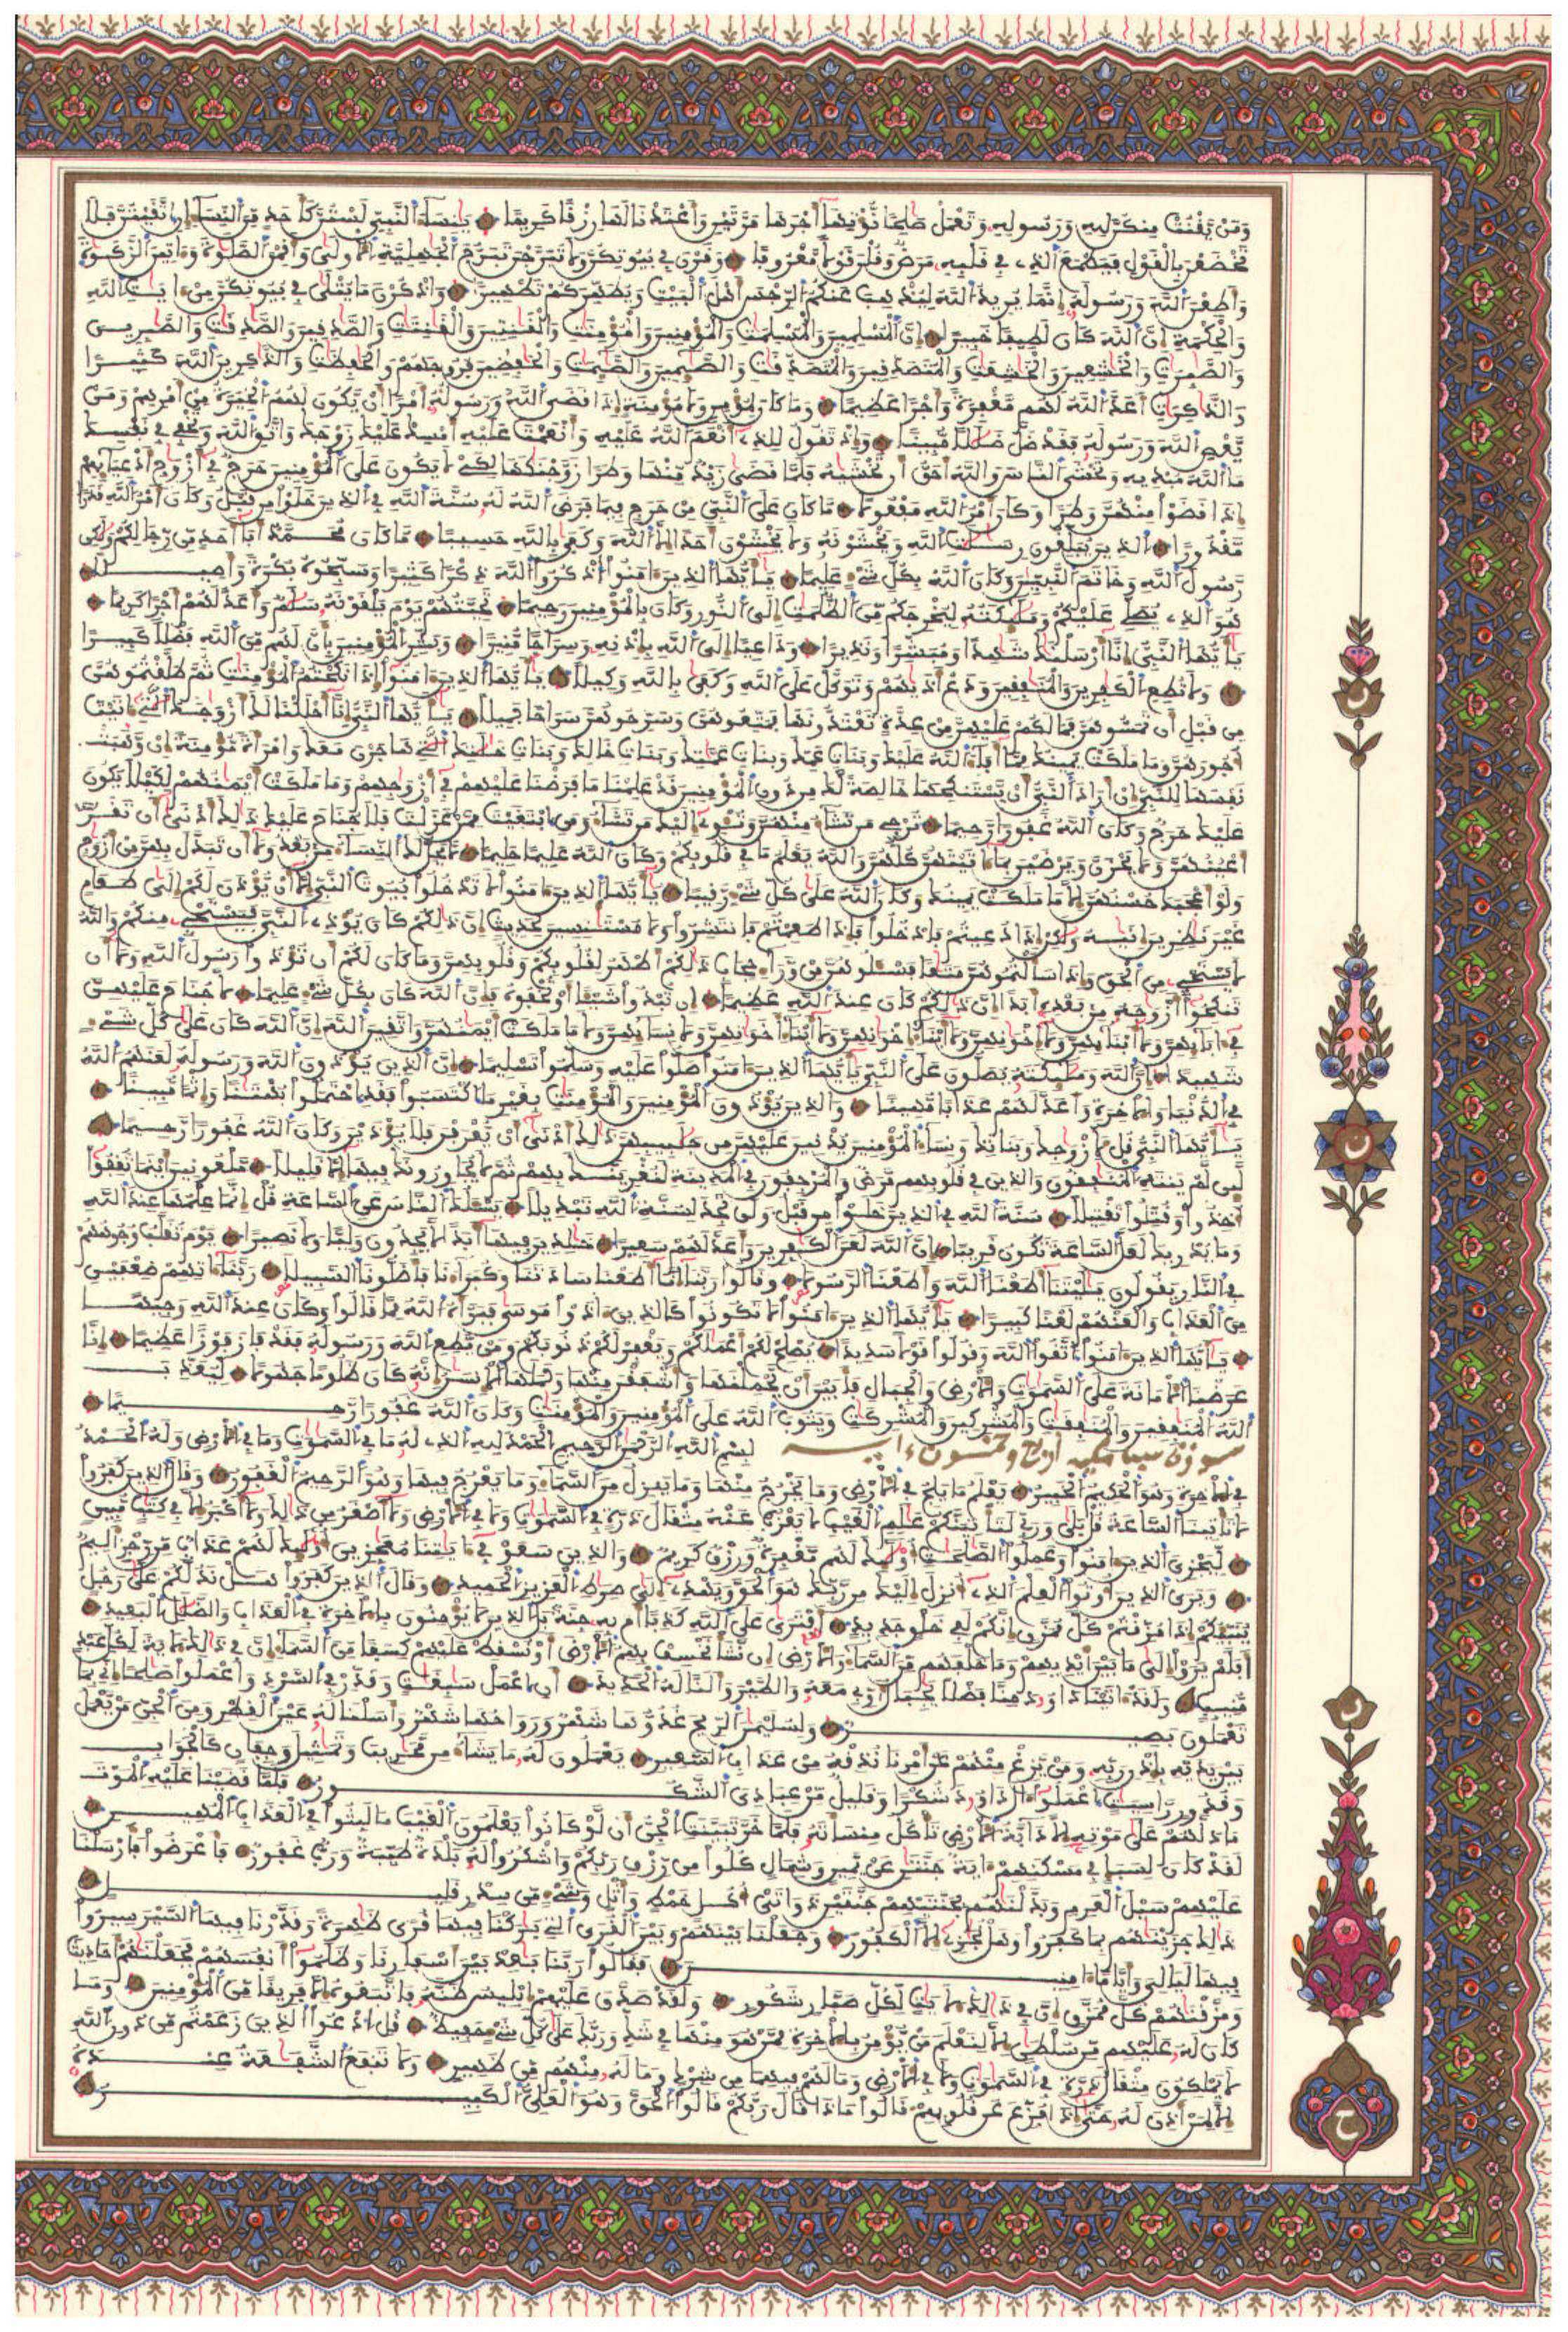 ومن يقنت منكن لله ورسوله وتعمل صلحا نوتها أجرها مرتين وأعتدنا لها رزقا كريما ينساء النبيء لستن كأحد من النساء ان اتقيتن فلا
تخضعن بالقول فيطمع الذي في قلبه مرض وقلن قولا معروفا وقرن في بيوتكن ولا تبرجن تبرج الجهلية الاولى وأقمن الصلوة وءاتين الزكوة
وأطعن الله ورسوله إنما يريد الله ليذهب عنكم الرجس أهل البيت ويطهركم تطهيرا واذكرن ما يتلى في بيوتكن من ءايت الله
والحكمة إن الله كان لطيفا خبيرا إن المسلمين والمسلمت والمومنين والمومنت والقنتين والقنتت والصدقين والصدقت والصبرين
والصبرت والخشعين والخشعت والمتصدقين والمتصدقت والصئمين والصئمت والحفظين فروجهم والحفظت والذكرين الله كثيرا
والذكرت أعد الله لهم مغفرة وأجرا عظيما وما كان لمومن ولا مومنة اذا قضى الله ورسوله أمرا ان تكون لهم الخيرة من امرهم ومن
يعص الله ورسوله فقد ضل ضللا مبينا وإذ تقول للذي أنعم الله عليه وأنعمت عليه أمسك عليك زوجك واتق الله وتخفي في نفسك
ما الله مبديه وتخشى الناس والله أحق أن تخشيه فلما قضى زيد منها وطرا زوجنكها لكي لا يكون على المومنين حرج في أزوج أدعيائهم
إذا قضوا منهن وطرا وكان أمر الله مفعولا ما كان على النبيء من حرج فيما فرض الله له سنة الله في الذين خلوا من قبل وكان أمر الله قدرا
مقدورا الذين يبلغون رسلت الله ويخشونه ولا يخشون أحدا الا الله وكفى بالله حسيبا ما كان محمد ابا أحد من رجالكم ولكن
رسول الله وخاتم النبيئين وكان الله بكل شيء عليما يأيها الذين ءامنوا اذكروا الله ذكرا كثيرا وسبحوه بكرة وأصيلا
هو الذي يصلي عليكم وملئكته ليخرجكم من الظلمت إلى النور وكان بالمومنين رحيما تحيتهم يوم يلقونه سلم وأعد لهم أجرا كريما
يأيها النبيء انا أرسلنك شهدا ومبشرا ونذيرا وداعيا الى الله بإذنه وسراجا منيرا وبشر المومنين بأن لهم من الله فضلا كبيرا
ولا تطع الكفرين والمنفقين ودع أذيهم وتوكل على الله وكفى بالله وكيلا يأيها الذين ءامنوا إذا نكحتم المومنت ثم طلقتموهن
من قبل أن تمسوهن فما لكم عليهن من عدة تعتدونها فمتعوهن وسرحوهن سراحا جميلا يأيها النبيء انا أحللنا لك أزوجك التي ءاتيت
أجورهن وما ملكت يمينك مما أفاء الله عليك وبنات عمك وبنات عمتك وبنات خالك وبنات خلتك التي هاجرن معك وامرأة مومنة ان وهبت
نفسها للنبيء ان اراد النبيء ان يستنكحها خالصة لك من دون المومنين قد علمنا ما فرضنا عليهم في أزوجهم وما ملكت أيمنهم لكيلا يكون
عليك حرج وكان الله غفورا رحيما ترجي من تشاء منهن وتئوي إليك من تشاء ومن ابتغيت ممن عزلت فلا جناح عليك ذلك أدنى أن تقر
أعينهن ولا يحزن ويرضين بما ءاتيتهن كلهن والله يعلم ما في قلوبكم وكان الله عليما حليما لا يحل لك النساء من بعد ولا أن تبدل بهن من ازوج
ولو اعجبك حسنهن إلا ما ملكت يمينك وكان الله على كل شيء رقيبا يأيها الذين ءامنوا لا تدخلوا بيوت النبيء الا أن يوذن لكم إلى طعام
غير نظرين انيه ولكن اذا دعيتم فادخلوا فإذا طعمتم فانتشروا ولا مستنسين لحديث ان ذلكم كان يوذي النبيء فيستحي منكم والله
لا يستحي من الحق وإذا سألتموهن متعا فسئلوهن من وراء حجاب ذلكم أطهر لقلوبكم وقلوبهن وما كان لكم أن توذوا رسول الله ولا أن
تنكحوا أزوجه من بعده أبدا ان ذلكم كان عند الله عظيما إن تبدوا شيئا او تخفوه فإن الله كان بكل شيء عليما لا جناح عليهن
في ءابائهن ولا أبنائهن ولا إخونهن ولا أبناء اخونهن ولا أبناء اخوتهن ولا نسائهن ولا ما ملكت ايمنهن واتقين الله إن الله كان على كل شيء
شهيدا ان الله وملئكته يصلون على النبيء يأيها الذين ءامنوا صلوا عليه وسلموا تسليما إن الذين يوذون الله ورسوله لعنهم الله
في الدنيا والاخرة وأعد لهم عذابا مهينا والذين يوذون المومنين والمومنت بغير ما اكتسبوا فقد احتملوا بهتنا وإثما مبينا
يأيها النبيء قل لأزوجك وبناتك ونساء المومنين يدنين عليهن من جلبيبهن ذلك أدنى أن يعرفن فلا يوذين وكان الله غفورا رحيما
لئن لم ينته المنفقون والذين في قلوبهم مرض والمرجفون في المدينة لنغرينك بهم ثم لا يجاورونك فيها إلا قليلا ملعونين أينما ثقفوا
أخذوا وقتلوا تقتيلا سنة الله في الذين خلوا من قبل ولن تجد لسنة الله تبديلا يسئلك الناس عن الساعة قل انما علمها عند الله
وما يدريك لعل الساعة تكون قريبا ان الله لعن الكفرين وأعد لهم سعيرا خلدين فيها أبدا لا يجدون وليا ولا نصيرا يوم تقلب وجوههم
في النار يقولون يليتنا أطعنا الله وأطعنا الرسولا وقالوا ربنا إنا أطعنا سادتنا وكبراءنا فأضلونا السبيلا ربنا ءاتهم ضعفين
من العذاب والعنهم لعنا كثيرا يأيها الذين ءامنوا لا تكونوا كالذين ءاذوا موسى فبرأه الله مما قالوا وكان عند الله وجيها
يأيها الذين ءامنوا اتقوا الله وقولوا قولا سديدا يصلح لكم أعملكم ويغفر لكم ذنوبكم ومن يطع الله ورسوله فقد فاز فوزا عظيما إنا
عرضنا الامانة على السموت والارض والجبال فأبين أن يحملنها وأشفقن منها وحملها الانسن إنه كان ظلوما جهولا ليعذب
الله المنفقين والمنفقت والمشركين والمشركت ويتوب الله على المومنين والمومنت وكان الله غفورا رحيما
سورة سبإ مكية اربع وخمسون ءاية بسم الله الرحمن الرحيم الحمد لله الذي له ما في السموت وما في الارض وله الحمد
في الاخرة وهو الحكيم الخبير يعلم ما يلج في الارض وما يخرج منها وما ينزل من السماء وما يعرج فيها وهو الرحيم الغفور وقال الذين كفروا
لا تاتينا الساعة قل بلى وربي لتاتينكم علم الغيب لا يعزب عنه مثقال ذرة في السموت ولا في الارض ولا أصغر من ذلك ولا أكبر إلا في كتب مبين
ليجزي الذين ءامنوا وعملوا الصلحت أولئك لهم مغفرة ورزق كريم والذين سعو في ءايتنا معجزين أولئك لهم عذاب من رجز اليم
ويرى الذين أوتوا العلم الذي أنزل إليك من ربك هو الحق ويهدي إلى صرط العزيز الحميد وقال الذين كفروا هل ندلكم على رجل
ينبئكم إذا مزقتم كل ممزق انكم لفي خلق جديد أفترى على الله كذبا ام به جنة بل الذين لا يومنون بالاخرة في العذاب والضلل البعيد
أفلم يروا الى ما بين أيديهم وما خلفهم من السماء والارض إن نشأ نخسف بهم الارض أو نسقط عليهم كسفا من السماء ان في ذلك لأية لكل عبد
منيب ولقد اتينا داود منا فضلا يجبال أوبي معه والطير وألنا له الحديد أن اعمل سبغت وقدر في السرد واعملوا صلحا اني بما
تعملون بصير ولسليمن الريح غدوها شهر ورواحها شهر وأسلنا له عين القطر ومن الجن من يعمل
بين يديه بإذن ربه ومن يزغ منهم عن امرنا نذقه من عذاب السعير يعملون له ما يشاء من محريب وتمثيل وجفان كالجواب
وقدور راسيت اعملوا ءال داود شكرا وقليل من عبادي الشكور فلما قضينا عليه الموت
ما دلهم على موته إلا دابة الارض تاكل منسأته فلما خر تبينت الجن أن لو كانوا يعلمون الغيب ما لبثوا في العذاب المهين
لقد كان لسبإ في مسكنهم ءاية جنتن عن يمين وشمال كلوا من رزق ربكم واشكروا له بلدة طيبة ورب غفور فأعرضوا فأرسلنا
عليهم سيل العرم وبدلنهم بجنتيهم جنتين ذواتى أكل خمط وأثل وشيء من سدر قليل
ذلك جزينهم بما كفروا وهل يجزى إلا الكفور وجعلنا بينهم وبين القرى التي بركنا فيها قرى ظهرة وقدرنا فيها السير سيروا
فيها ليالي وأياما امنين فقالوا ربنا بعد بين أسفارنا وظلموا أنفسهم فجعلنهم أحاديث
ومزقنهم كل ممزق ان في ذلك لأيت لكل صبار شكور ولقد صدق عليهم إبليس ظنه فاتبعوه إلا فريقا من المومنين وما
كان له عليهم من سلطن الا لنعلم من يومن بالاخرة ممن هو منها في شك وربك على كل شيء حفيظ قل ادعوا الذين زعمتم من دون الله
لا يملكون مثقال ذرة في السموت ولا في الارض وما لهم فيهما من شرك وما له منهم من ظهير ولا تنفع الشفعة عنده
إلا لمن اذن له حتى إذا فزع عن قلوبهم قالوا ماذا قال ربكم قالوا الحق وهو العلي الكبير
ح